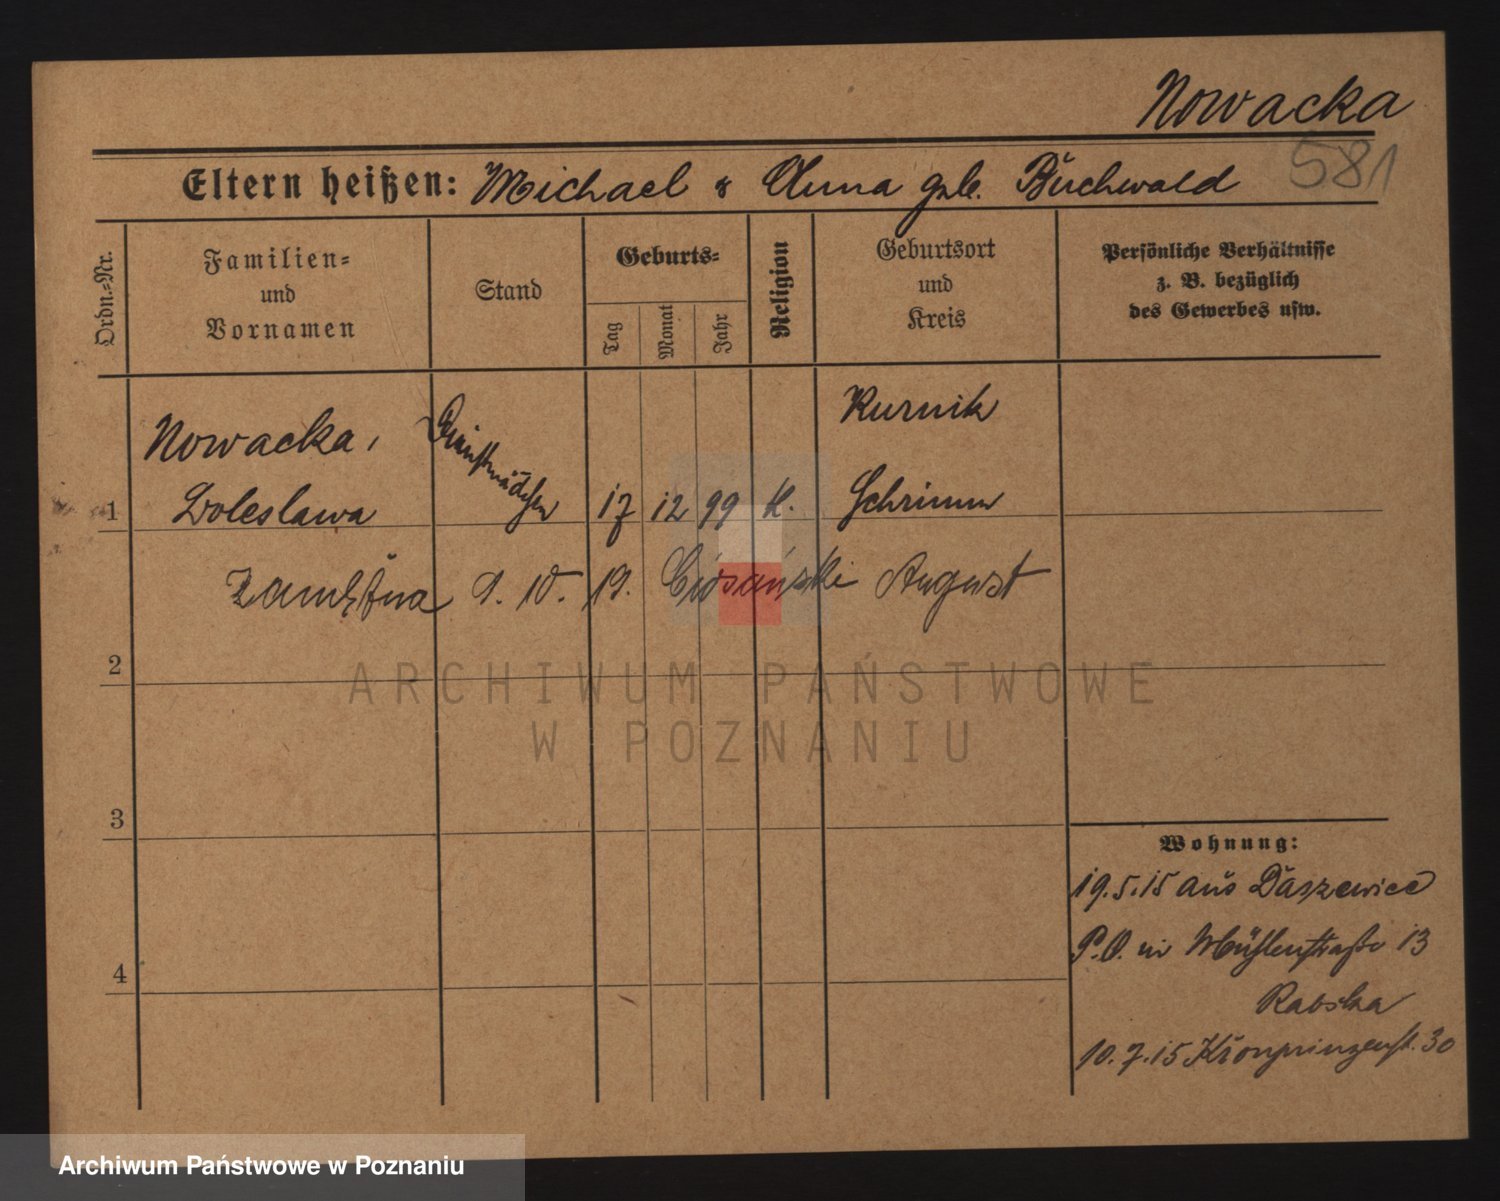 Nowacka
581
Eltern heißen: Michael & Anna geb. Buchwald
Ordn.-Nr.
Familien-
und
Vornamen
Stand
Geburts-
Tag
Monat
Jahr
Religion
Geburtsort
und
Kreis
Persönliche Verhältnisse
z. B. bezüglich
des Gewerbes usw.
Nowacka,
Boleslawa
Dienstmädchen
1
17 12 99 K.
Kurnik
Schrimm
9. 10. 19. August
2
3
4
Wohnung:
19.5.15 aus Daszewice
P.O. in Mühlenstraße 13
10.7.15 Kronprinzenst. 30
ARCHIWUM PAŃSTWOWE
W POZNANIU
Archiwum Państwowe w Poznaniu